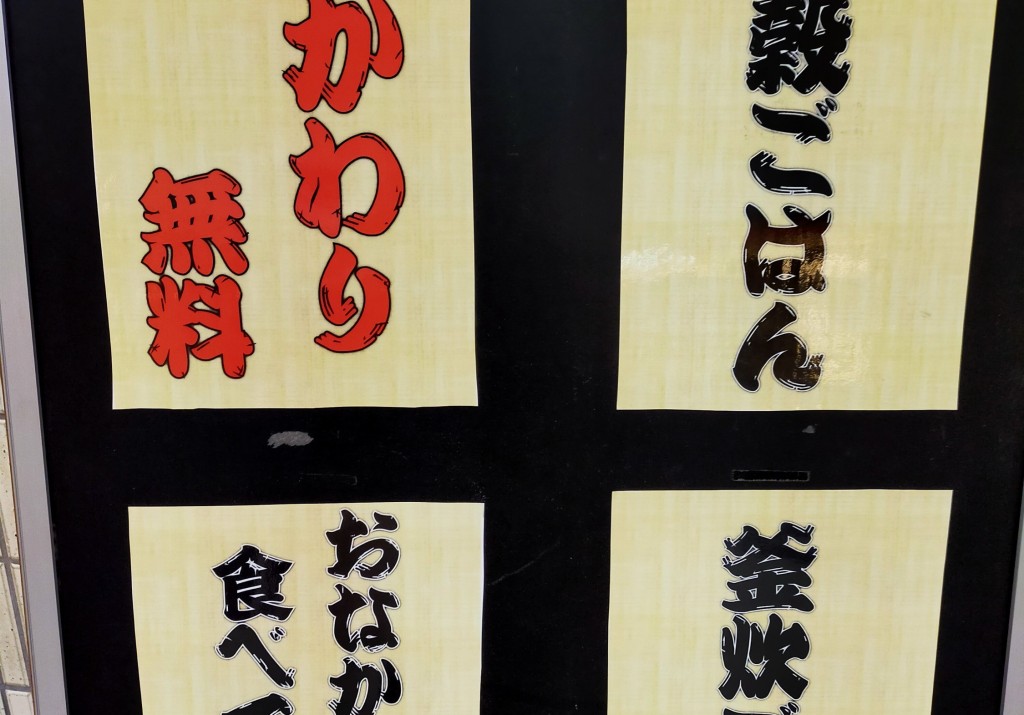 穀ごはん
かわり
無料
釜炊
おなか
食べ